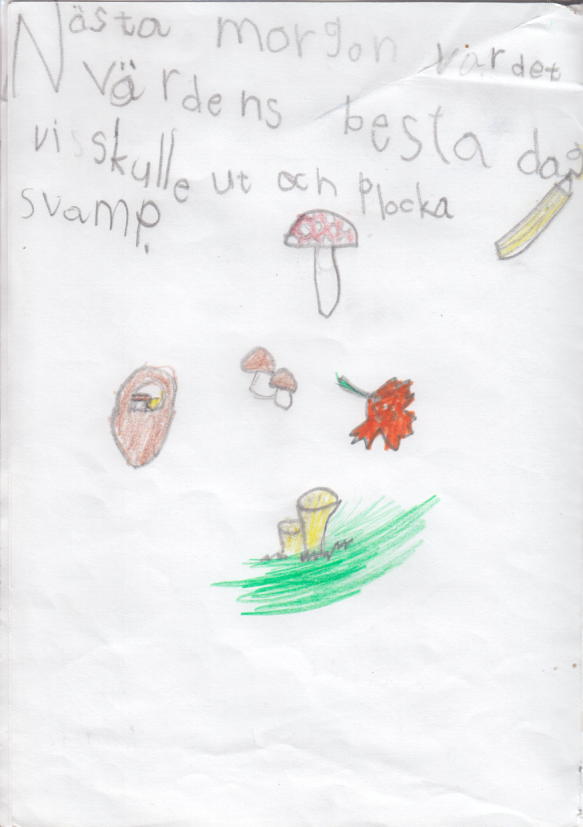 Nästa morgon var det
världens besta dag
vi skulle ut och plocka
svamp.